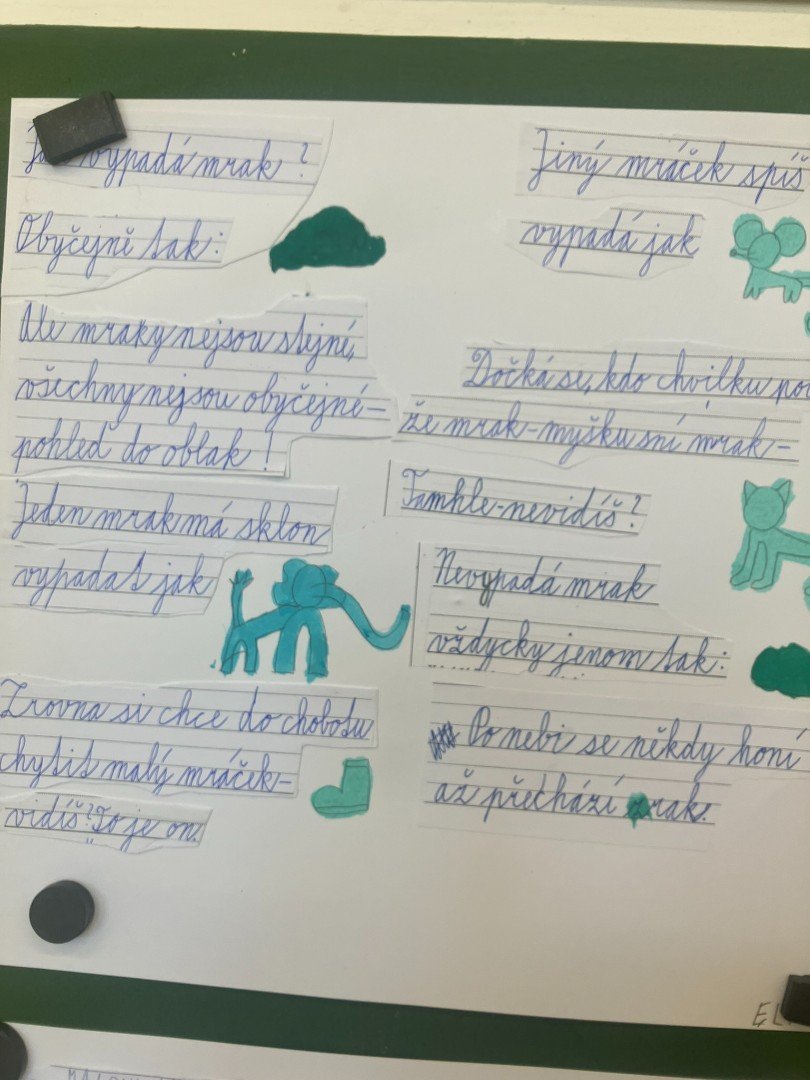 vypadá mrak ?
Obyčejně tak:
Ale mraky nejsou stejné,
všechny nejsou obyčejné –
pohleď do oblak !
Jeden mrak má sklon
vypadat jak
Zrovna si chce do chobotu
chytit malý mráček –
vidíš? To je on.
Jiný mráček spíš
vypadá jak
Dočká se, kdo chvilku
že mrak – myšku sní mrak –
Tamhle – nevidíš ?
Nevypadá mrak
vždycky jenom tak:
Po nebi se někdy honí
až přechází zrak.